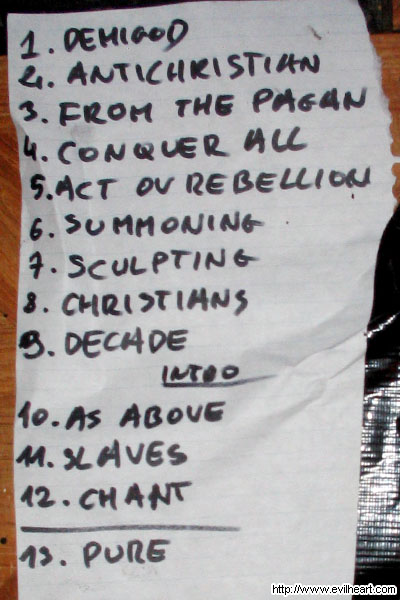 1. DEMIGOD
2. ANTICHRISTIAN
3. FROM THE PAGAN
4. CONQUER ALL
5. ACT OV REBELLION
6. SUMMONING
7. SCULPTING
8. CHRISTIANS
9. DECADE
INTRO
10. AS ABOVE
11. SLAVES
12. CHANT
13. PURE
http://www.evilheart.com